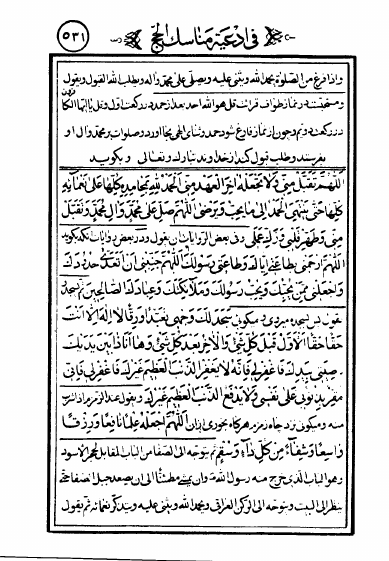 في ادعية مناسك الحج
٥٣١
واذا فرغ من الصلوة يحمد الله ويثنى عليه ويصلي على محمد واله ويطلب الله القبول ويقول
ومستحبست در نماز طواف قرائت قل هو الله احد بعد از حمد در ركعت اول وقل يا ايها الكافرون
در ركعت دويم وچون از نماز فارغ شود حمد وثناى الهى بجا اورد وصلوات بر محمد وال او
بفرستد وطلب قبول كند از خداوند تبارك وتعالى وبگويد
اللهم تقبل مني ولا تجعله اخر العهد مني الحمد لله بمحامده كلها على نعمائه
كلها حتى ينتهي الحمد الى ما يحب ويرضى اللهم صل على محمد وال محمد وتقبل
مني وطهر قلبي وزك عملي وفي بعض الروايات ان يقول ودر بعض روايات كه بگويد
اللهم ارحمني بطاعتي اياك وطاعتي رسولك اللهم جنبني ان اتعدى حدودك
واجعلني ممن يحبك ويحب رسولك وملائكتك وعبادك الصالحين ثم يسجد
ويقول پس بسجده ميرود وميگويد سجد لك وجهي تعبدا ورقا لا اله الا انت
حقا حقا الاول قبل كل شئ والاخر بعد كل شئ وها انا ذا بين يديك
ناصيتي بيدك فاغفر لي فانه لا يغفر الذنب العظيم غيرك فاغفر لي فاني
مقر بذنوبي على نفسي ولا يدفع الذنب العظيم غيرك ويقول عند الزمزم اذا شرب
منه وميگويد نزد چاه زمزم هرگاه بخورد از ان اللهم اجعله علما نافعا ورزقا
واسعا وشفاء من كل داء وسقم ثم يتوجه الى الصفا من الباب المقابل لحجر الاسود
وهو الباب الذي خرج منه رسول الله وان يمشي مطمئنا الى ان يصعد جبل الصفا حتى
ينظر الى البيت ويتوجه الى الركن العراقي ويحمد الله ويثنى عليه ويتذكر نعمائه ثم يقول